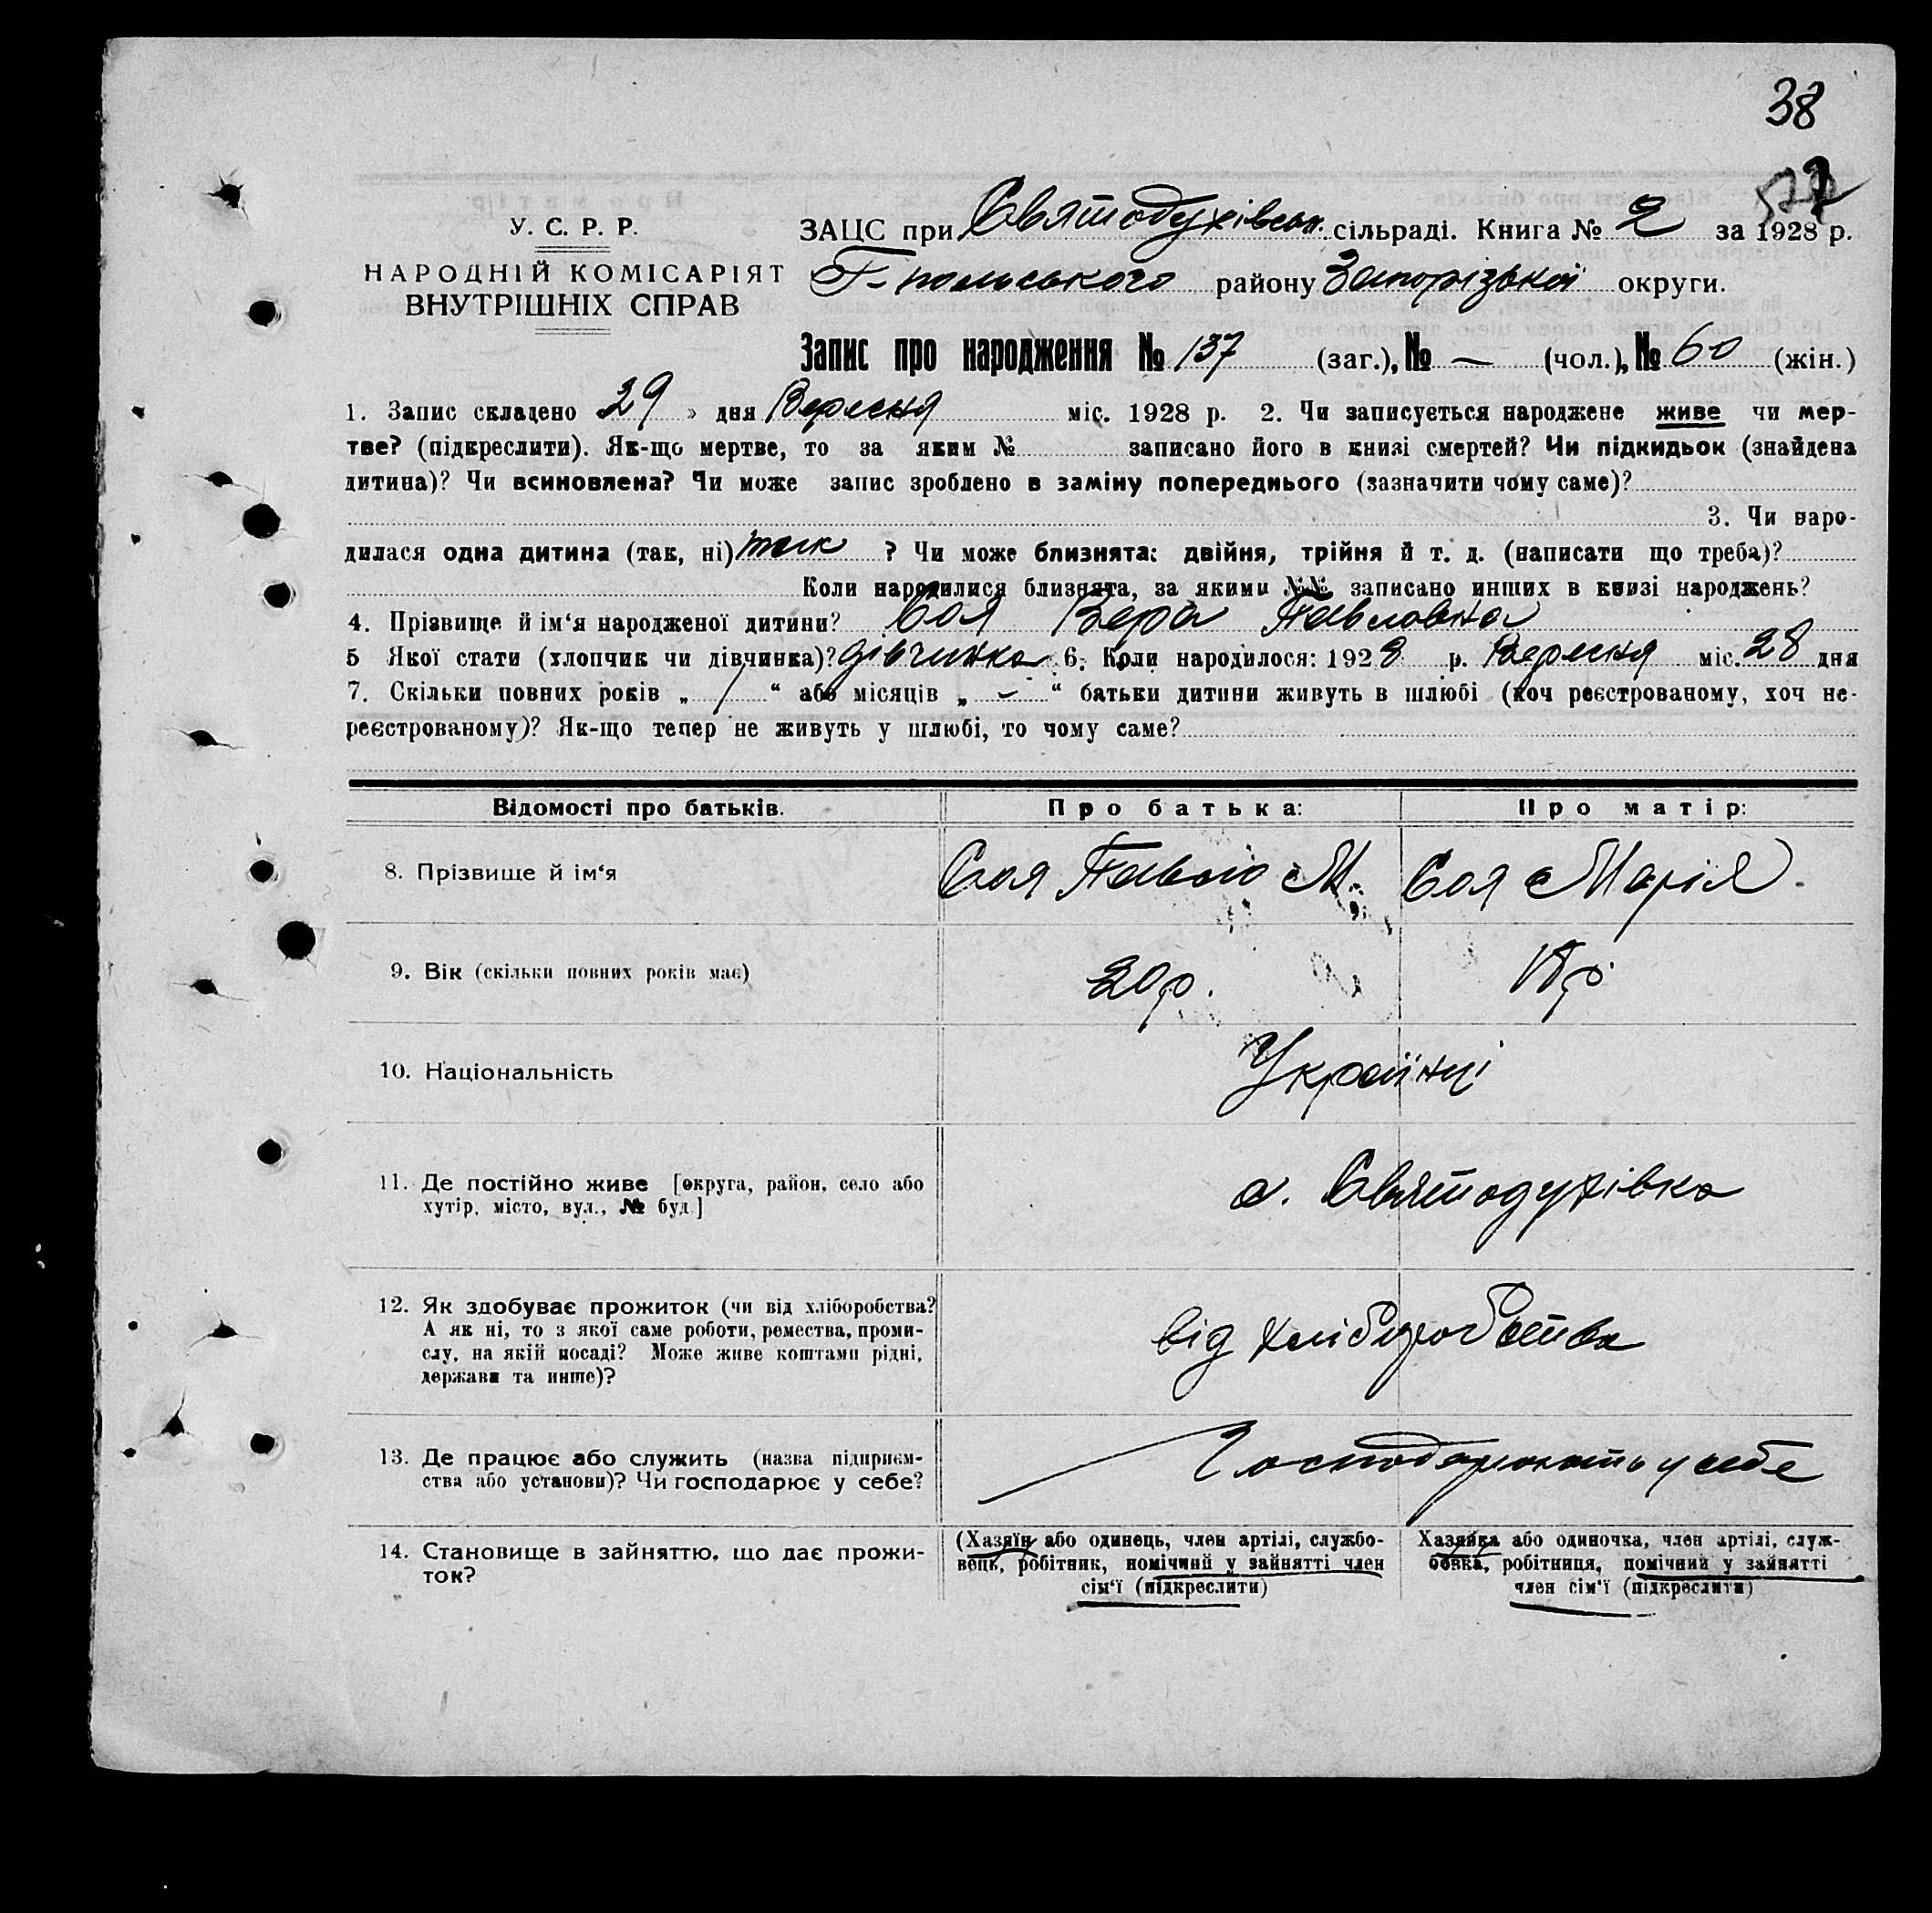 38
У. С. Р. Р.
НАРОДНІЙ КОМІСАРІЯТ
ВНУТРІШНІХ СПРАВ
ЗАЦС при Святодухівськ. сільраді. Книга № 2 за 1928 р.
Г-польського району Запорізької округи.
Запис про народження № 137 (заг.), № — (чол.), № 60 (жін.)
1. Запис складено 29 » дня Вересня міс. 1928 р. 2. Чи записується народжене живе чи мер-
тве? (підкреслити). Як-що мертве, то за яким № записано його в книзі смертей? Чи підкидьок (знайдена
дитина)? Чи всиновлена? Чи може запис зроблено в заміну попереднього (зазначити чому саме)?
3. Чи наро-
дилася одна дитина (так, ні) так ? Чи може близнята: двійня, трійня й т. д. (написати що треба)?
Коли народилися близнята, за якими №№ записано инших в книзі народжень?
4. Прізвище й ім‘я народженої дитини? Соя Вера Павловна
5 Якої стати (хлопчик чи дівчинка)? дівчинка 6. Коли народилося: 1928 р. Вересня міс. 28 дня
7. Скільки повних років „ 1 “ або місяців „ — “ батьки дитини живуть в шлюбі (хоч реєстрованому, хоч не-
реєстрованому)? Як-що тепер не живуть у шлюбі, то чому саме?
Відомості про батьків. Про батька: Про матір:
8. Прізвище й ім‘я Соя Павло М. Соя Марія
9. Вік (скільки повних років має) 20 р. 18 р
10. Національність Українці
11. Де постійно живе [округа, район, село або
хутір, місто, вул., № буд.]
с. Святодухівка
12. Як здобуває прожиток (чи від хліборобства?
А як ні, то з якої саме роботи, ремества, проми-
слу, на якій посаді? Може живе коштами рідні,
держави та инше)?
від хліборобства
13. Де працює або служить (назва підприєм-
ства або установи)? Чи господарює у себе?
Господарюють у себе
14. Становище в зайняттю, що дає прожи-
ток?
(Хазяїн або одинець, член артілі, службо-
вець, робітник, помічний у зайнятті член
сім‘ї (підкреслити)
Хазяйка або одиночка, член артілі, служ-
бовка, робітниця, помічний у зайнятті
член сім‘ї (підкреслити)